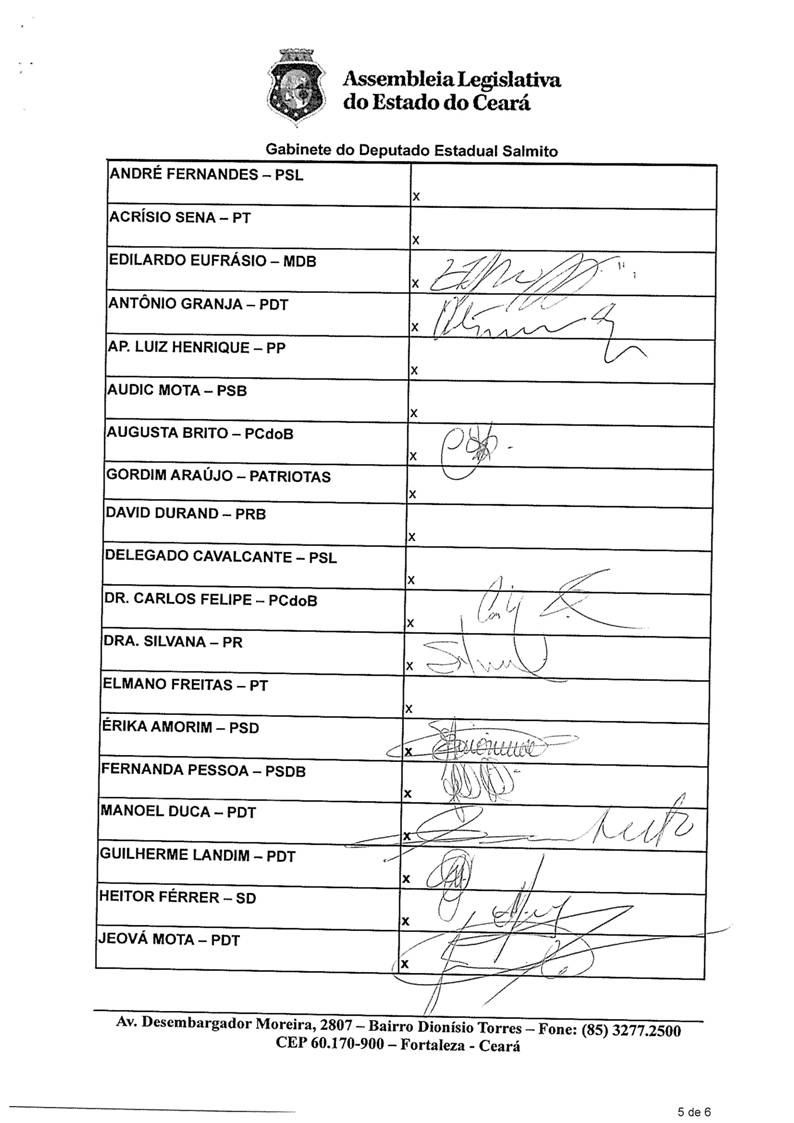 Assembleia Legislativa
do Estado do Ceará
Gabinete do Deputado Estadual Salmito
ANDRÉ FERNANDES – PSL
x
ACRÍSIO SENA – PT
x
EDILARDO EUFRÁSIO – MDB
x
ANTÔNIO GRANJA – PDT
x
AP. LUIZ HENRIQUE – PP
x
AUDIC MOTA – PSB
x
AUGUSTA BRITO – PCdoB
x
GORDIM ARAÚJO – PATRIOTAS
x
DAVID DURAND – PRB
x
DELEGADO CAVALCANTE – PSL
x
DR. CARLOS FELIPE – PCdoB
x
DRA. SILVANA – PR
x
ELMANO FREITAS – PT
x
ÉRIKA AMORIM – PSD
x
FERNANDA PESSOA – PSDB
x
MANOEL DUCA – PDT
x
GUILHERME LANDIM – PDT
x
HEITOR FÉRRER – SD
x
JEOVÁ MOTA – PDT
x
Av. Desembargador Moreira, 2807 – Bairro Dionísio Torres – Fone: (85) 3277.2500
CEP 60.170-900 – Fortaleza - Ceará
5 de 6